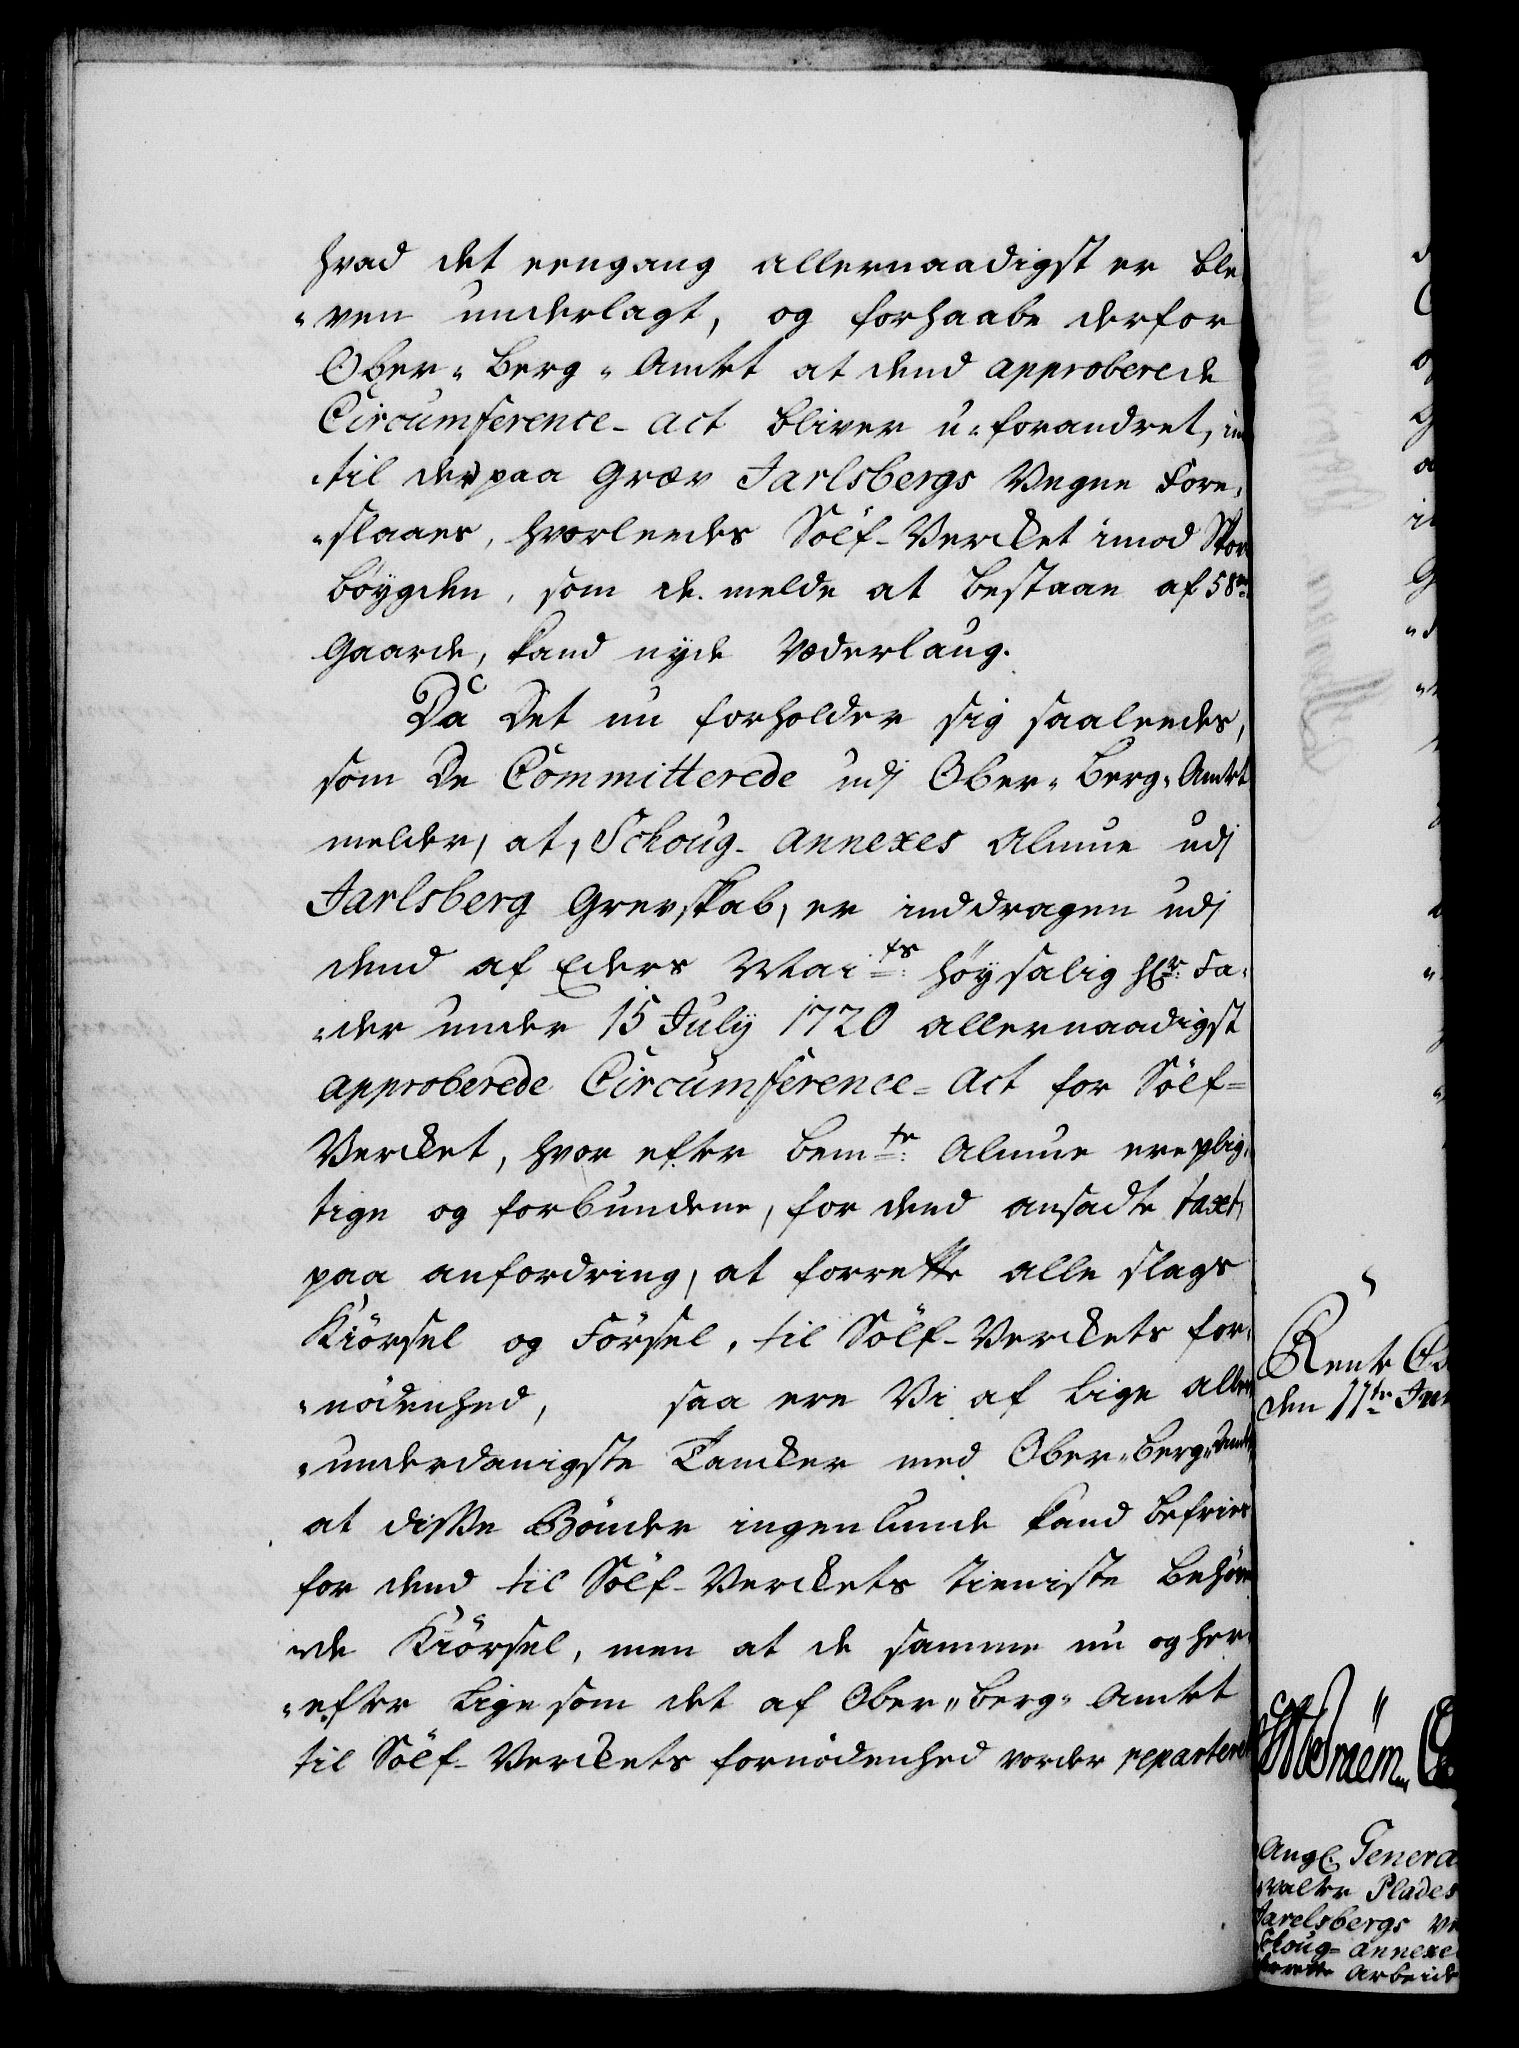 hvad det eengang allernaadigst er ble
"ven underlagt, og forhaabe derfor
Ober-Berg-Amtet at dend approberede
Circumference-Act bliver u-forandret, in
"til der paa Græv Jarlsbergs Vegne Fore,
"slaaes, hvorleedes Sölf-Vercket imod
böygden, som de melde at bestaae af 58
Gaarde, kand nyde Vederlaug.
Da Det nu forholder sig saaleedes,
som De Committerede udj Ober-Berg-Amtet
melder, at, Schoug-Annexes Almue udj
Jarlsberg Grevskab, er inddragen udj
dend af Eders Mai:ts höysalig Hr: Fa,
"der under 15 July 1720 allernaadigst
approberede Circumference-Act for Sölf-
Vercket, hvor efter bem:te Almue ere plig,
tige og forbundene, for dend ansadte taxt,
paa anfordring, at forrette alle slags
Kiörsel og Försel, til Sölf-Verckets for,
"nödenhed, saa ere Vi af lige aller
"underdanigste Tancker med Ober-Berg-Amtet
at disse Bönder ingenlunde kand befries
for dend til Sölf-Verckets tieniste behöv
"de Kiörsel, men at de samme nu og her,
"efter lige som det af Ober-Berg-Amtet
til Sölf-Verckets fornödenhed vorder reparteret
Rente
den 11te Jan
Ang: Genera
valter Plades
Jarelsbergs
Schoug-annexe
Arbeide